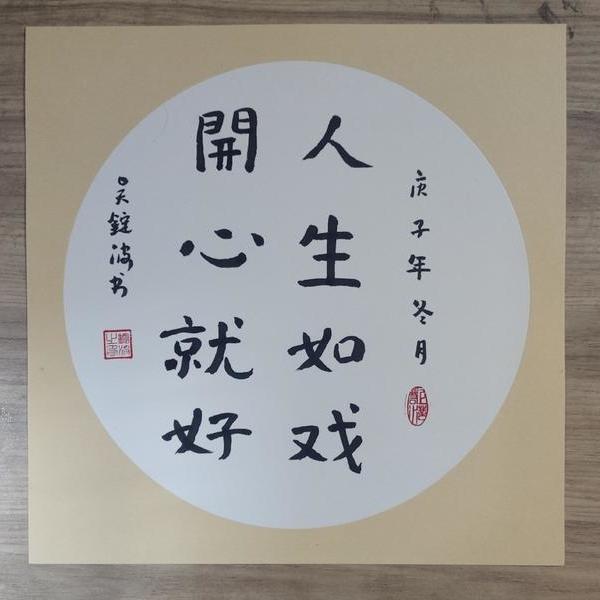 庚子年冬月
人生如戏
開心就好
吴锭波书